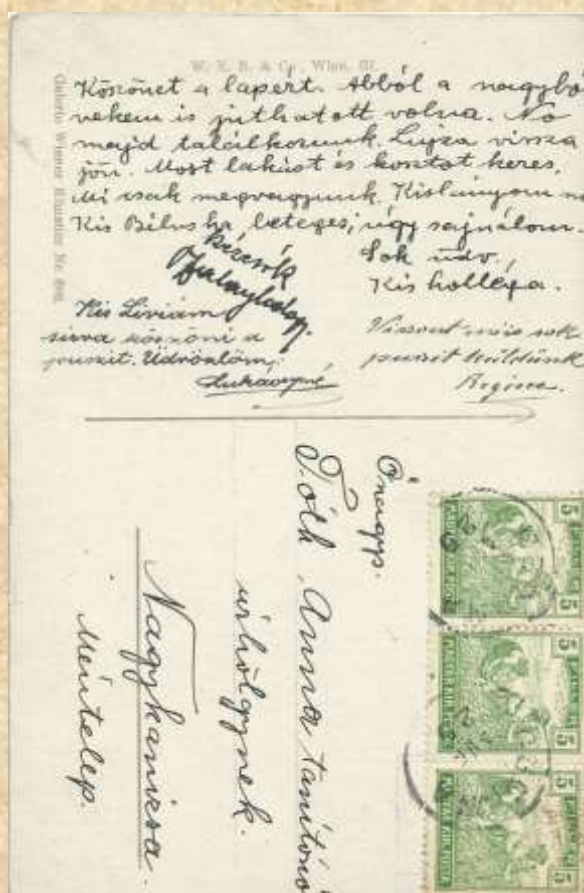 W. E. B. & Co., Wien, III.
Köszönet a lapért. Abból a nagyból
nekem is juthatott volna. No
majd találkozunk. Lujza vissza
jön. Most lakást és kosztot keres.
Mi csak megvagyunk. Kislányom
Kis Biluska beteges, úgy sajnálom.
Sok üdv.,
Kis kolléga.
Kézcsók
Kis Líviám
sirva köszöni a
puszit. Üdvözlöm,
Viszont mis sok
puszit küldünk
Galerie Wiener Künstler Nr.
Önagys.
Tóth Anna tanítónő
úrhölgynek.
Nagykanizsa.
Méntelep.
5
5
5
5
5
5